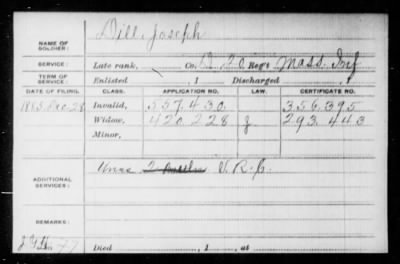 Dill, Joseph
NAME OF SOLDIER:
SERVICE: Late rank, Co. D, 20 Reg't Mass. Inf
TERM OF SERVICE: Enlisted , 1 Discharged , 1
DATE OF FILING. CLASS. APPLICATION NO. LAW. CERTIFICATE NO.
1885, Dec. 28 Invalid, 557.430. 356.395
Widow, 420.228 293.443
Minor,
ADDITIONAL SERVICES: V. R. C.
REMARKS:
Died , 1 , at